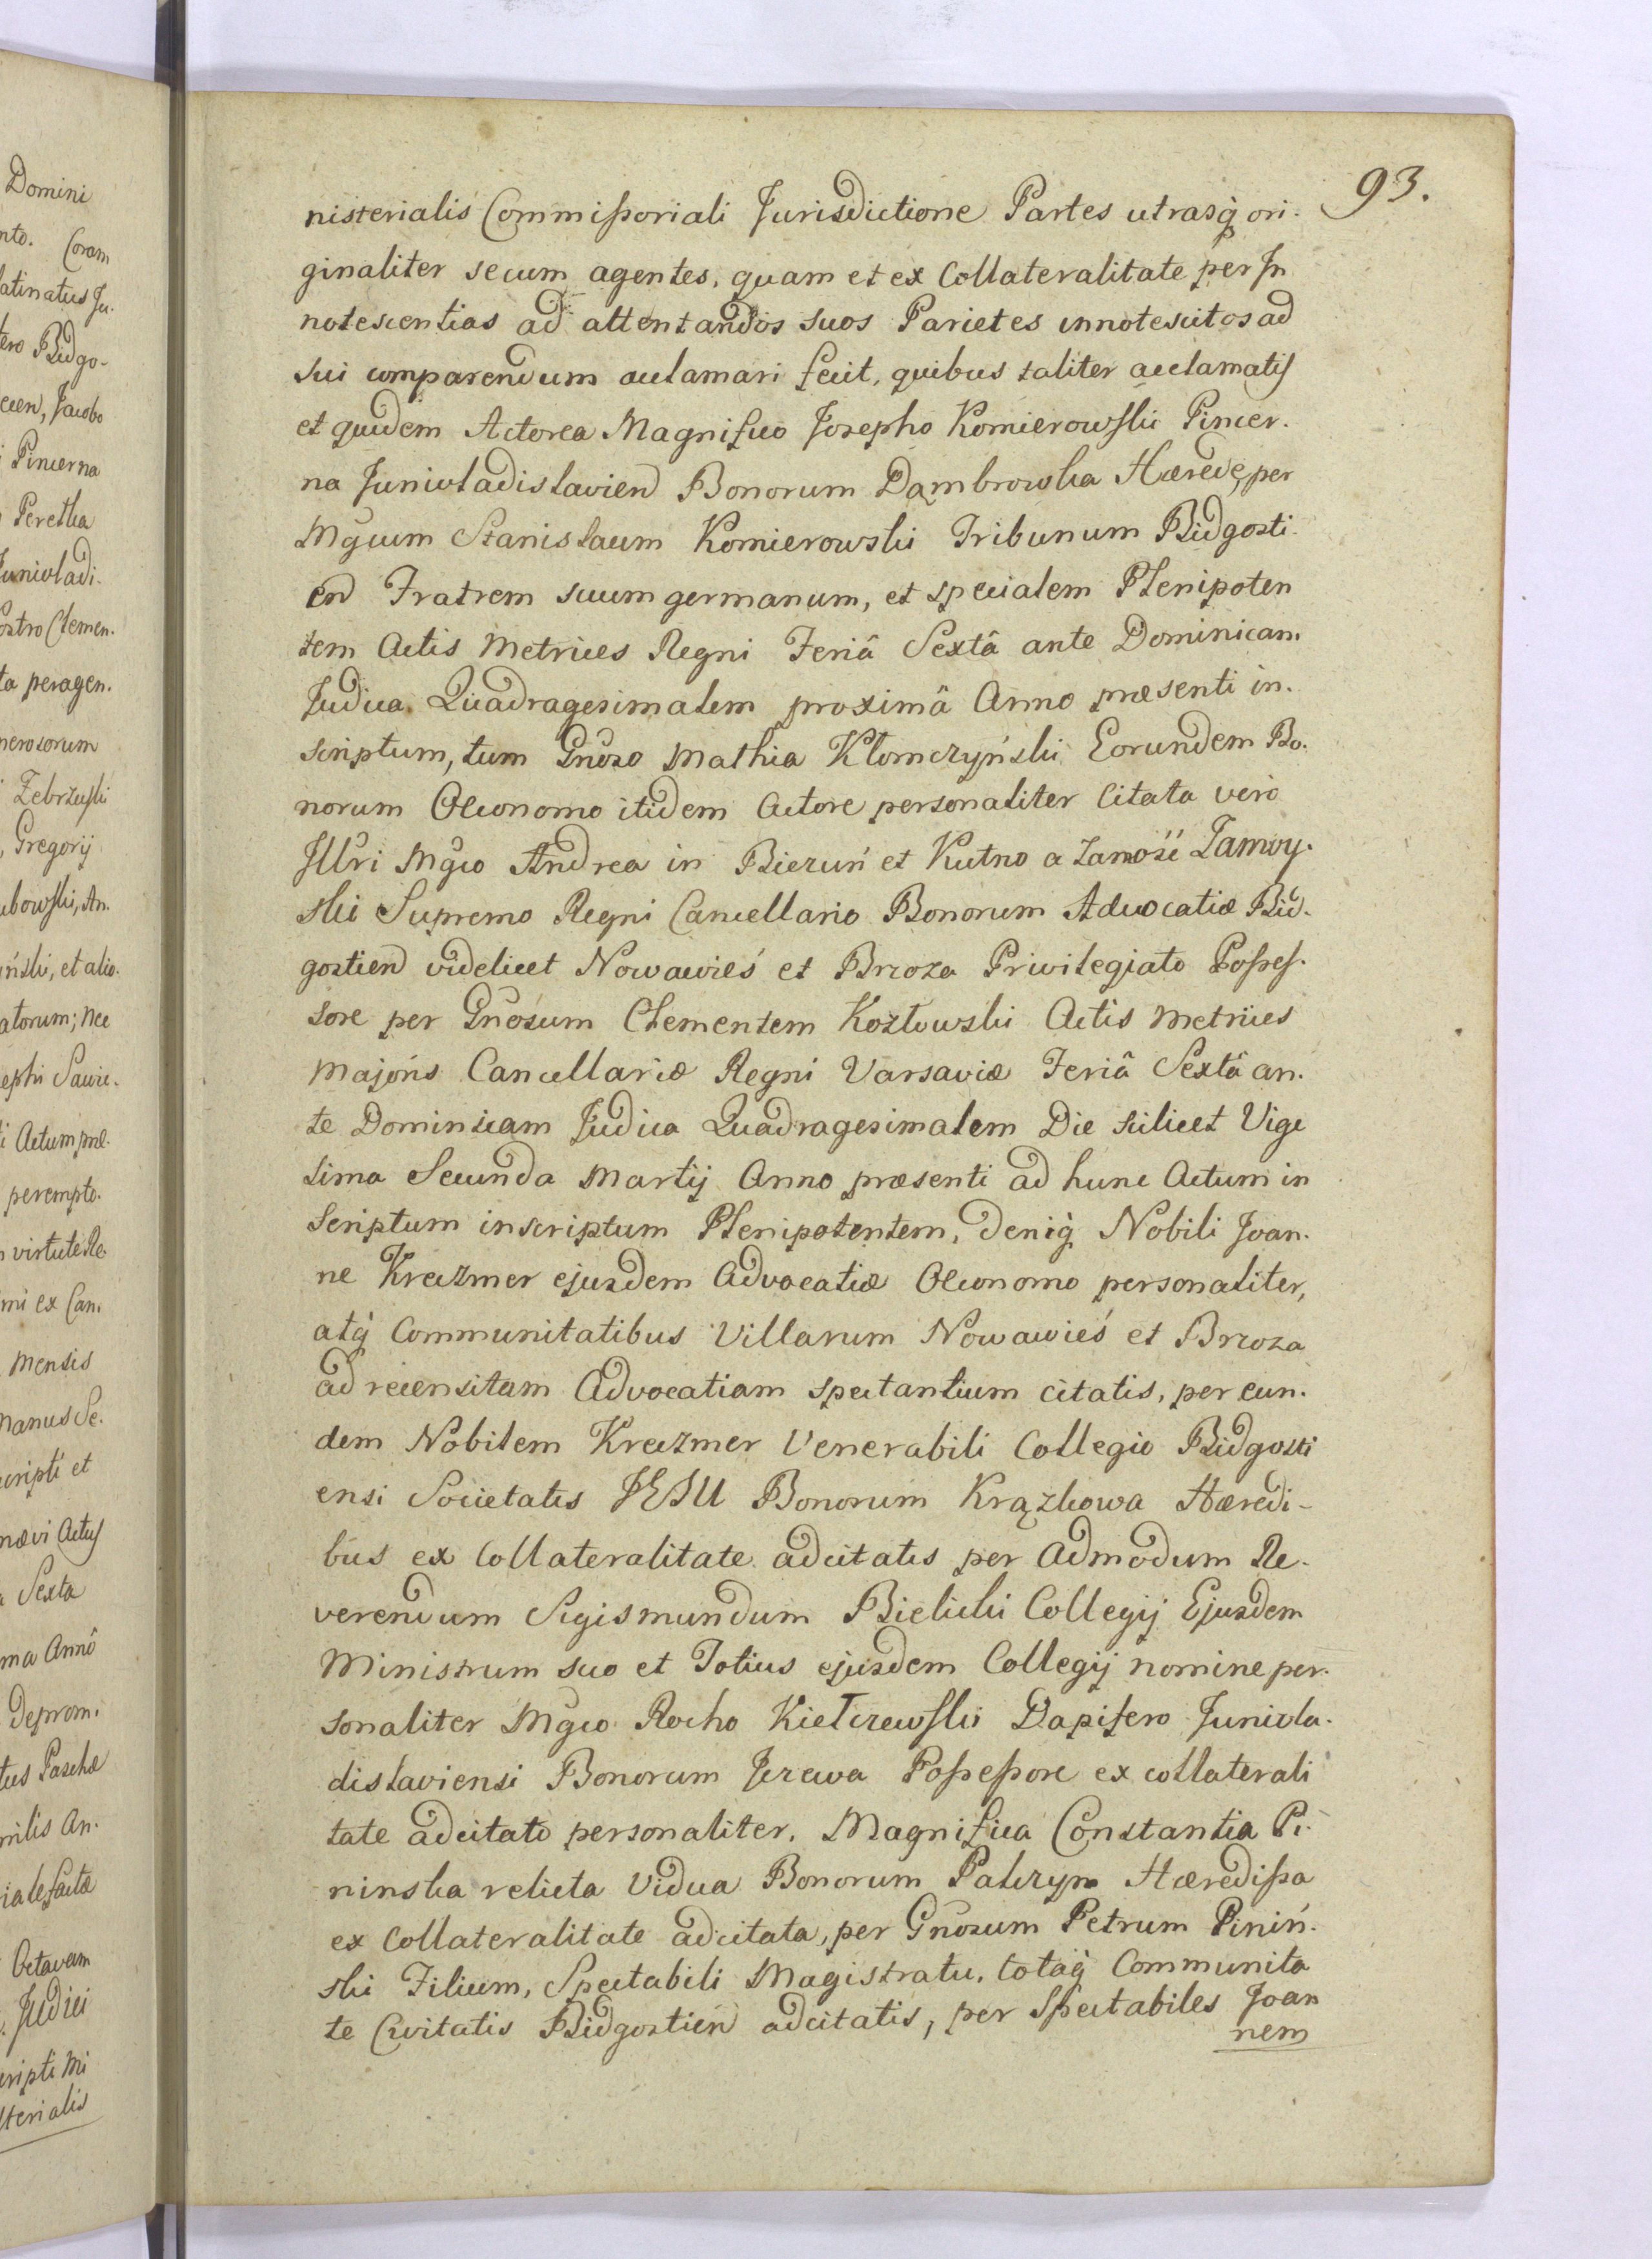 93.
nisterialis Commissoriali Jurisdictione Partes utrasq́ ori-
ginaliter secum agentes, quam et ex Collateralitate per In
notescentias ad attentandos suos Parietes innotescitos ad
sui comparendum acclamari fecit, quibus taliter acclamatis
et quidem Actorea Magnifico Josepho Komierowski Pincer-
na Junivladislavien Bonorum Dąmbrowka Hærede, per
Mgcum Stanislaum Komierowski Tribunum Bidgosti-
en Fratrem suum germanum, et specialem Plenipoten
tem Actis Metrices Regni Feriâ Sextâ ante Dominicam
Judica Quadragesimalem proximâ Anno præsenti in-
scriptum, tum Gnoso Mathia Kłomczyński Eorundem Bo-
norum Oeconomo itidem Actore personaliter Citata vero
Illri Mgco Andrea in Bieżuń et Kutno a Zamośc Zamoy-
ski Supremo Regni Cancellario Bonorum Advocatiæ Bid-
gostien videlicet Nowawieś et Brzoza Privilegiato Posses-
sore per Gnosum Clementem Kozłowski Actis Metrices
Majoris Cancellariæ Regni Varsaviæ Feriâ Sextâ an-
te Dominicam Judica Quadragesimalem Die scilicet Vige
sima Secunda Martij Anno præsenti ad hunc Actum in
scriptum inscriptum Plenipotentem, deniq́ Nobili Joan-
ne Kreczmer ejusdem Advocatiæ Oeconomo personaliter,
atq́ Communitatibus Villarum Nowawieś et Brzoza
ad recensitam Advocatiam spectantium citatis, per eun-
dem Nobilem Kreczmer Venerabili Collegio Bidgosti
ensi Societatis JESU Bonorum Krązkowa Hæredi-
bus ex Collateralitate adcitatis per Admodum Re-
verendum Sigismundum Bielicki Collegij Ejusdem
Ministrum suo et Totius ejusdem Collegij nomine per-
sonaliter Mgco Rocho Kiełczewski Dapifero Junivla-
dislaviensi Bonorum Jezewa Possessore ex collaterali
tate adcitato personaliter, Magnifica Constantia Pi-
ninska relicta Vidua Bonorum Palczyn Hæredissa
ex Collateralitate adcitata, per Gnosum Petrum Piniń-
ski Filium, Spectabili Magistratu, totaq́ Communita
te Civitatis Bidgostien adcitatis, per Spectabiles Joan
nem
Domini
nto. Coram
latinatus Ju-
tero Bidgo-
cien, Jacobo
Pincerna
Peretka
Junivladi-
ostro Clemen-
ta peragen-
nerosorum
Zebrzuski
, Gregorij
ubowski, An-
iński, et alio-
atorum; Nec
ephi Sawic-
i Actum præ-
perempto-
virtute Re-
mi ex Can-
Mensis
manus Se-
scripti et
nævi Actus
Sexta
ma Annô
deprom-
tus Paschæ
milis An-
iale factæ
Octavam
Judici
scripti Mi
sterialis